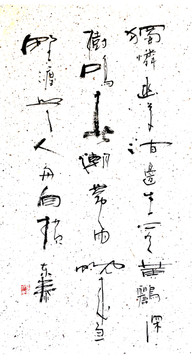 獨憐幽草澗邊生上有黃鸝深
樹鳴春潮帶雨晚來急
野渡無人舟自橫